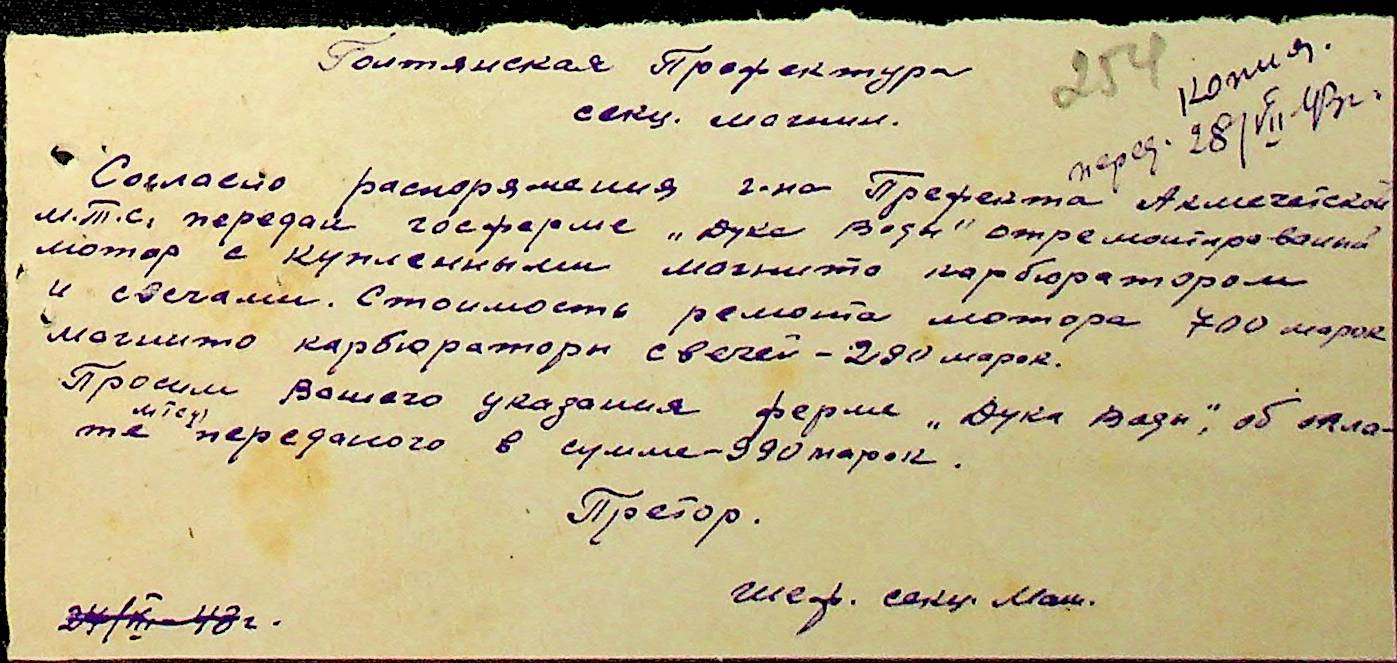 Голтянская Префектура
254
Копия.
секц. машин.
перед. 28/VII 43г.
Согласно распоряжения г-на Префекта Акмечетской
М.Т.С. передан госферме „Дука Воды" отремонтированый
мотор с купленными магнито карбюратором
и свечами. Стоимость ремонта мотора 700 марок
магнито карбюраторы свечей – 290 марок.
Просим Вашего указания ферме „Дука Воды", об опла-
мтсу
те переданого в сумме – 990 марок.
Претор.
Шеф. секц. Маш.